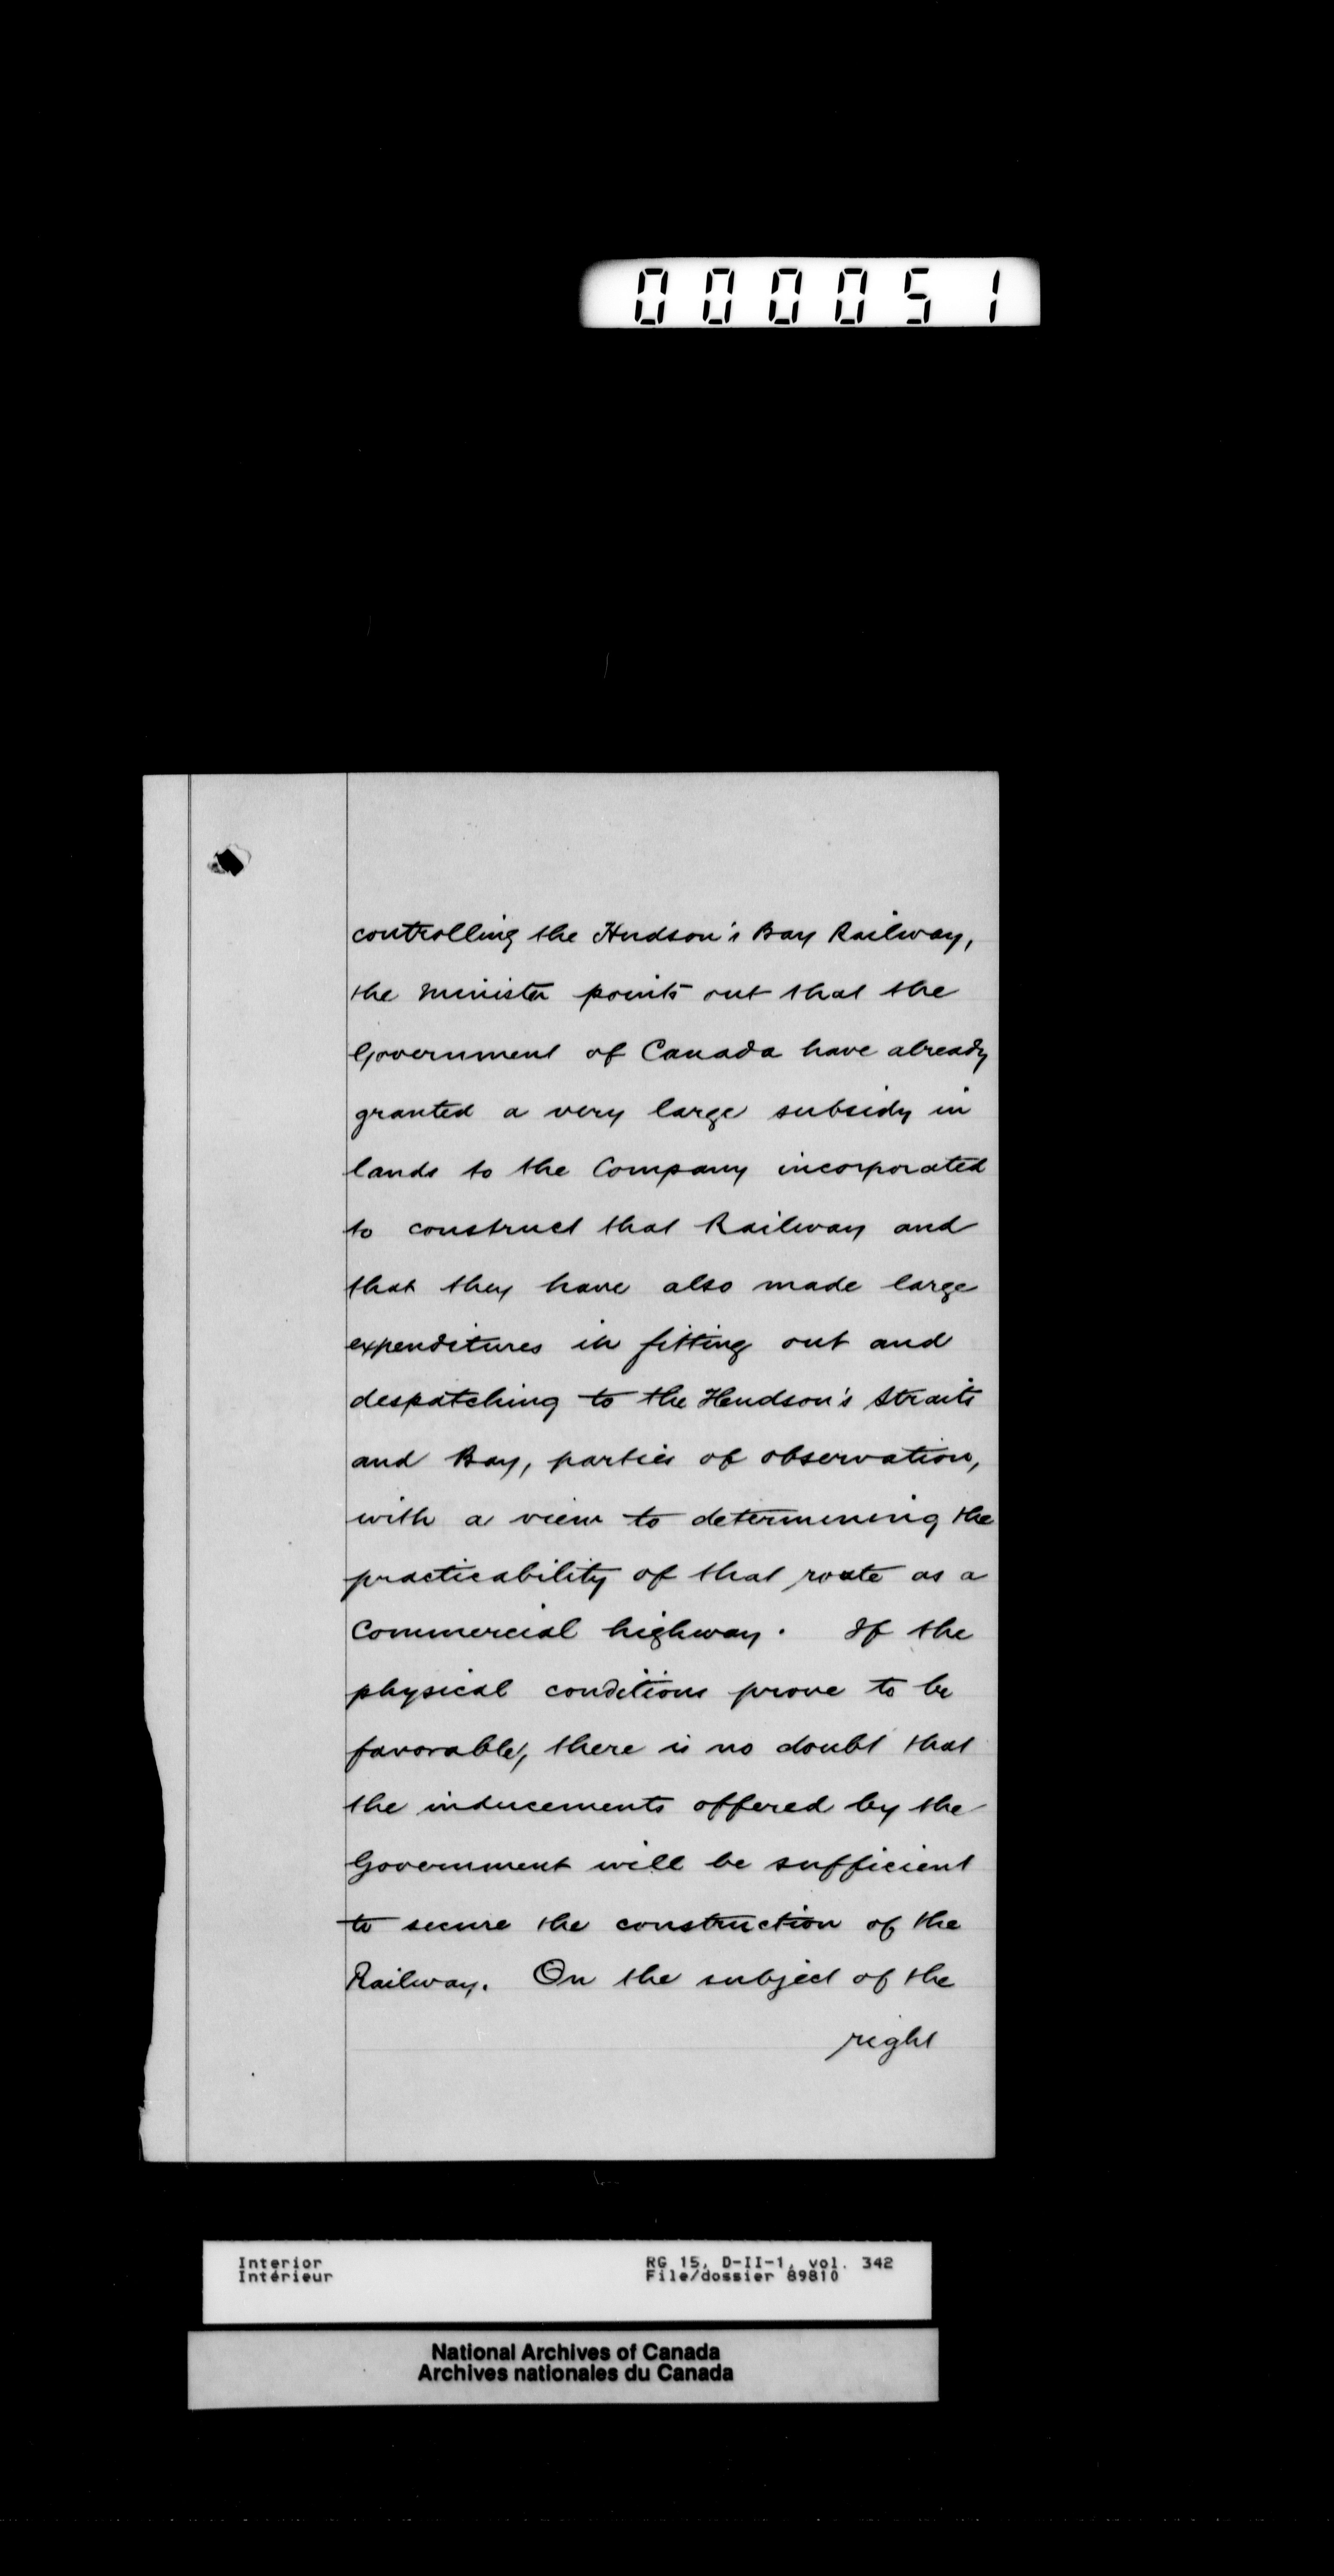 000051
controlling the Hudson's Bay Railway,
the Minister points out that the
Government of Canada have already
granted a very large subsidy in
lands to the Company incorporated
to construct that Railway and
that they have also made large
expenditures in fitting out and
despatching to the Hudson's Straits
and Bay, parties of observation,
with a view to determining the
practicability of that route as a
Commercial highway. If the
physical conditions prove to be
favorable, there is no doubt that
the inducements offered by the
Government will be sufficient
to secure the construction of the
Railway. On the subject of the
right
Interior RG 15, D-II-1, vol. 342
Intérieur File/dossier 89810
National Archives of Canada
Archives nationales du Canada